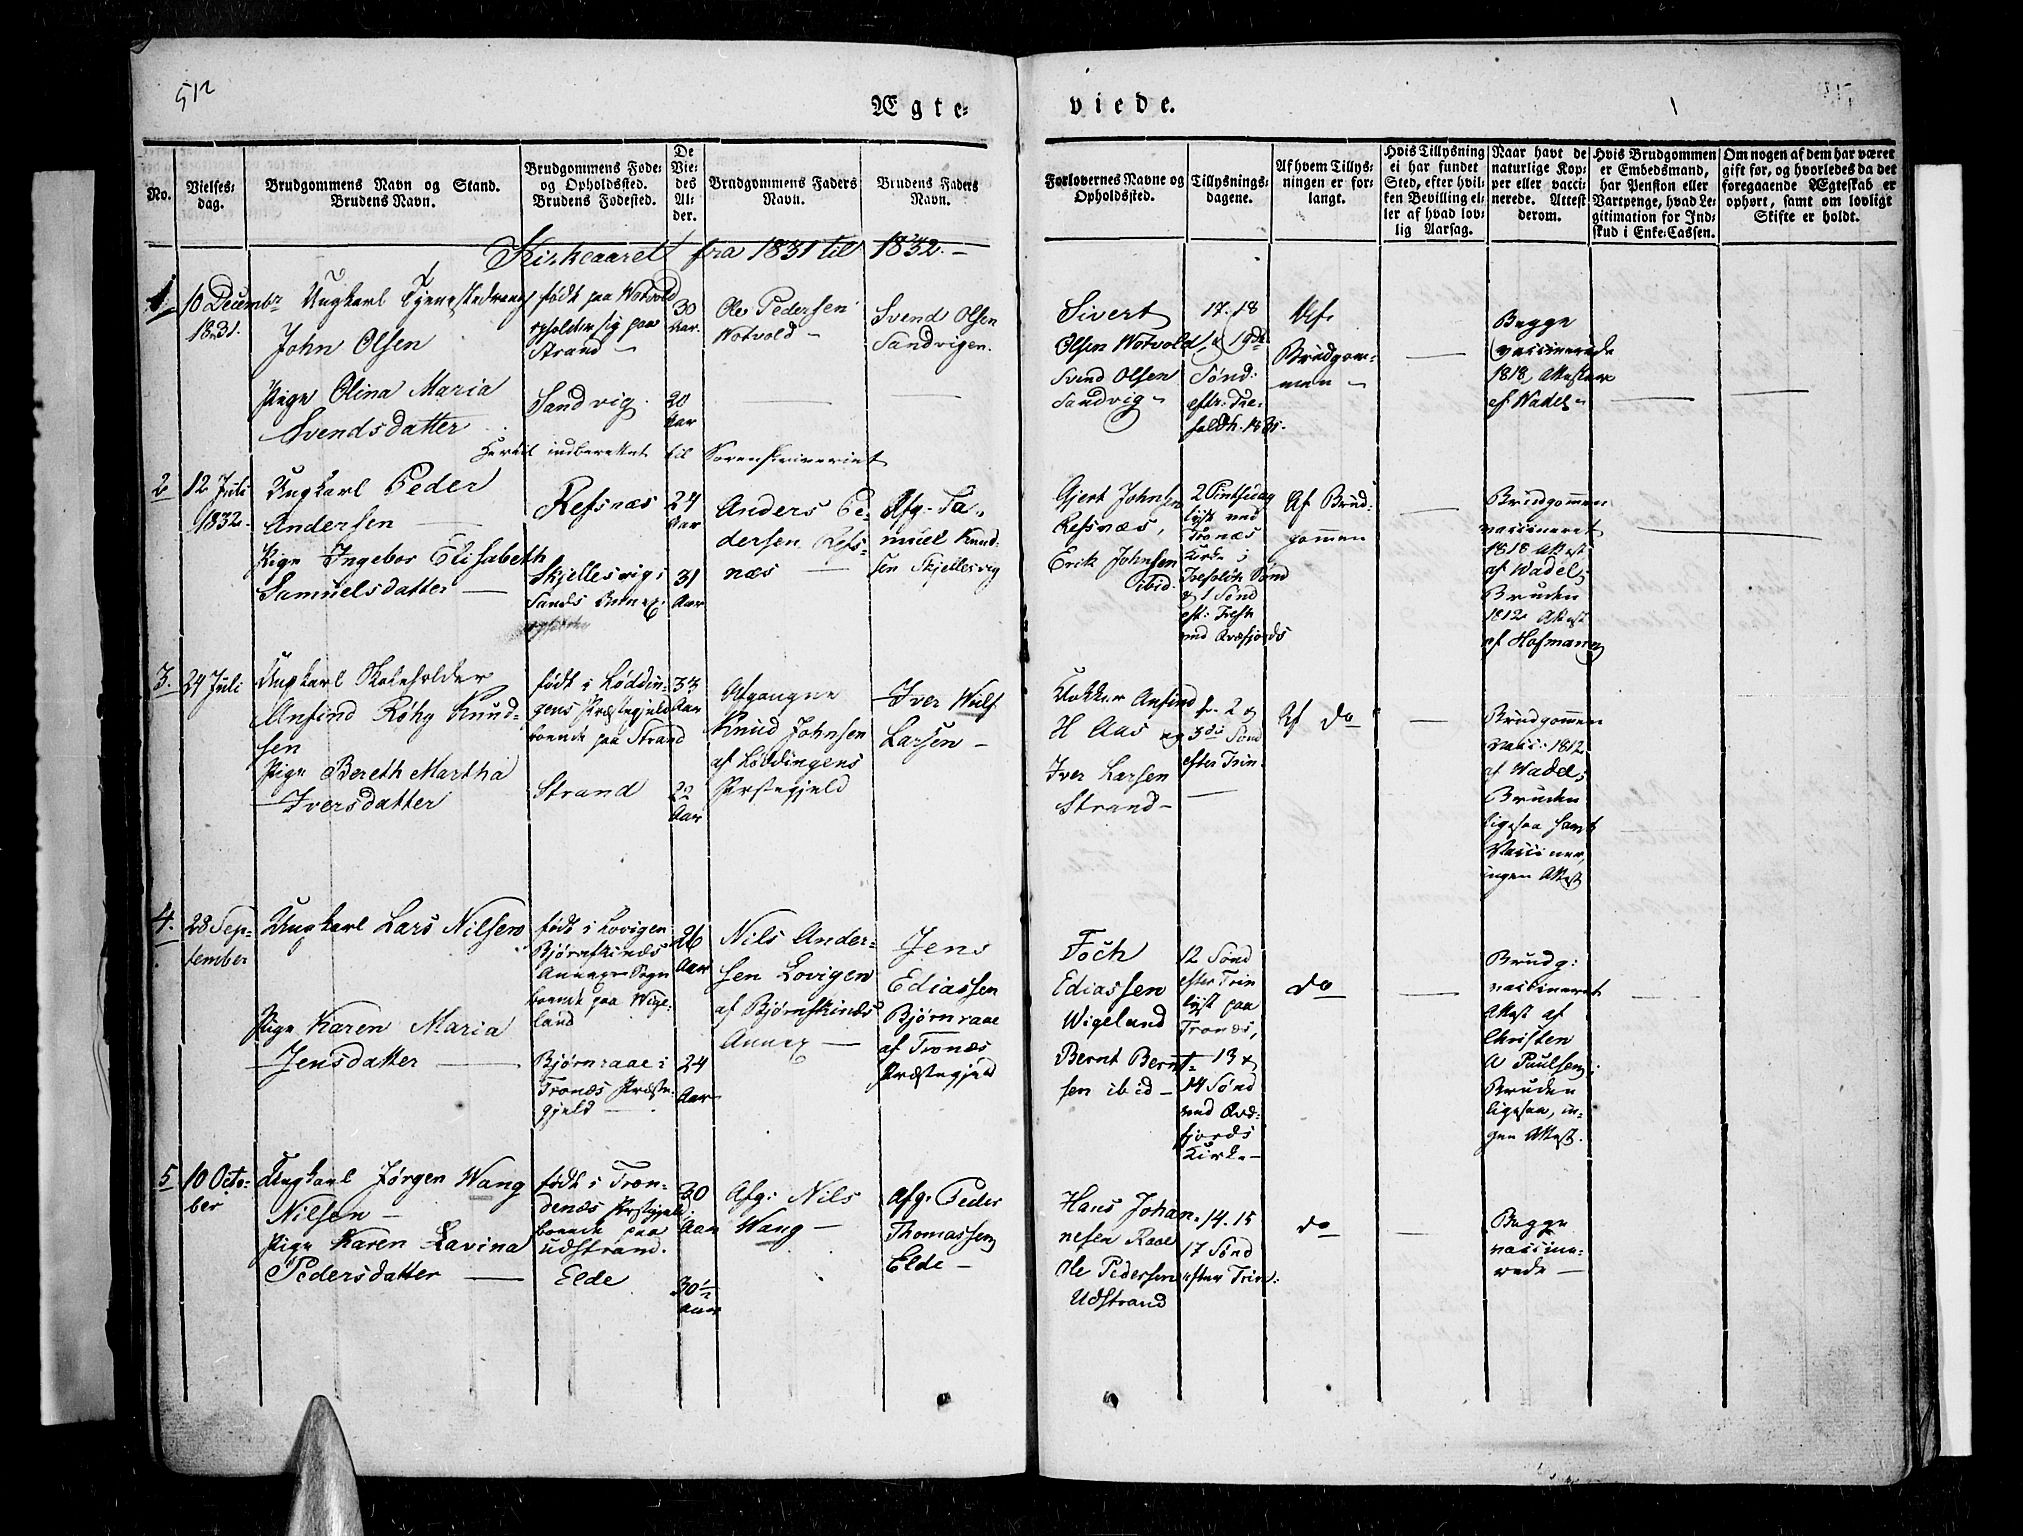 512
Ægte-
viede.
No.
Vielses-
dag.
Brudgommens Navn og Stand.
Brudens Navn.
Brudgommens Føde-
og Opholdssted.
Brudens Fødested.
De
Vie-
des
Al-
der.
Brudgommens Faders
Navn.
Brudens Faders
Navn.
Forlovernes Navne og
Opholdssted.
Tillysnings-
dagene.
Af hvem Tillys-
ningen er for-
langt.
Hvis Tillysning
ei har fundet
Sted, efter hvil-
ken Bevilling el-
ler af hvad lov-
lig Aarsag.
Naar havt de
naturlige Kop-
per eller vacci-
nerede. Attest
derom.
Hvis Brudgommen
er Embedsmand,
har Pension eller
Vartpenge, hvad Le-
gitimation for Ind-
skud i Enke-Cassen.
Om nogen af dem har været
gift før, og hvorledes da det
foregaaende Ægteskab er
ophørt, samt om lovligt
Skifte er holdt.
Kirkeaaret fra 1831 til 1832.-
1.
10 Decembr
1831.
Ungkarl Tjenestedreng
John Olsen
Pige Olina Maria
Svendsdatter
født paa Wotvold
opholder sig paa
Strand -
Sandvig.
30
Aar.
20
Aar
Ole Pedersen
Wotvold -
Svend Olsen
Sandvigen.
Sivert
Olsen Wotvold
Svend Olsen
Sandvig -
17. 18
& 19de
Sønd:
eftr: Tre-
foldh. 1831.
Af
Brudgom-
men -
Begge
vaccinerede
1818, Attester
af Wadel -
Hertil indberettet til Sorenskriveriet
2
12 Juli
1832.
Ungkarl Peder
Andersen
Pige Ingebor Elisabeth
Samuelsdatter -
Refsnæs
Skjellesvig i
Sands Annex.
24
Aar
31
Aar
Anders Pe-
dersen Refs-
næs -
Afg. Sa-
muel Knud-
sen Skjellesvig
Gjert Johnsen
Refsnæs,
Erik Johnsen
ibid.
2 Pintsedag
lyst ved
Tronæs
Kirke i
Trefoldh Sønd
& 1 Sønd
eft: Trefh
ved Qvæfjords
Af Brud-
gommen
Brudgommen
vaccineret
1818 Attest
af Wadel;
Bruden
1812 Attest
af Hofmann
3.
24 Juli
Ungkarl Skoleholder
Anfind Røhg Knud-
sen
Pige Bereth Martha
Iversdatter
født i Løddin-
gens Præstegjeld
boende paa Strand
Strand
33
Aar
22
Aar
Afgangne
Knud Johnsen
af Løddingens
Præstegjeld
Iver Wulf
Larsen -
Klokker Anfind
H Aas og
Iver Larsen
Strand -
1. 2 &
3die Sønd
efter Trin-
Af do
Brudgommen
vacc: 1812
af Wadel;
Bruden
ligesaa samt
Vacciner,
ingen Attest
4.
28 Sep-
tember
Ungkarl Lars Nilsen
Pige Karen Maria
Jensdatter -
født i Lovigen
Bjørnskinds
Annexes Sogn
boende paa Wige-
land
Bjørnraae i
Tronæs Præste-
gjeld -
26
Aar
24
Aar
Nils Ander-
sen Lovigen
af Bjørnskinds
Annex -
Jens
Ediassen
Bjørnraae
af Tronæs
Præstegjeld
Foch
Ediassen
Wigeland
Bernt Bernt-
sen ibid -
12 Sønd
efter Trin
lyst paa
Tronæs,
13 &
14 Sønd
ved Qvæ-
fjords
Kirke -
do
Brudg:
vaccineret
Attest af
Christen
A Paulsen;
Bruden
ligesaa, in-
gen Attest.
5
10 Octo-
ber
Ungkarl Jørgen Wang
Nilsen -
Pige Karen Lavina
Pedersdatter -
født i Tron-
denæs Præstegjeld
boende paa
udstrand.
Elde
30
Aar
30½
Aar
Afg: Nils
Wang -
Afg: Peder
Thomassen
Elde -
Hans Johan-
nesen Raae
Ole Pedersen
Udstrand
14. 15
17 Sønd
efter Trin:
do
Begge
vaccine-
rede -